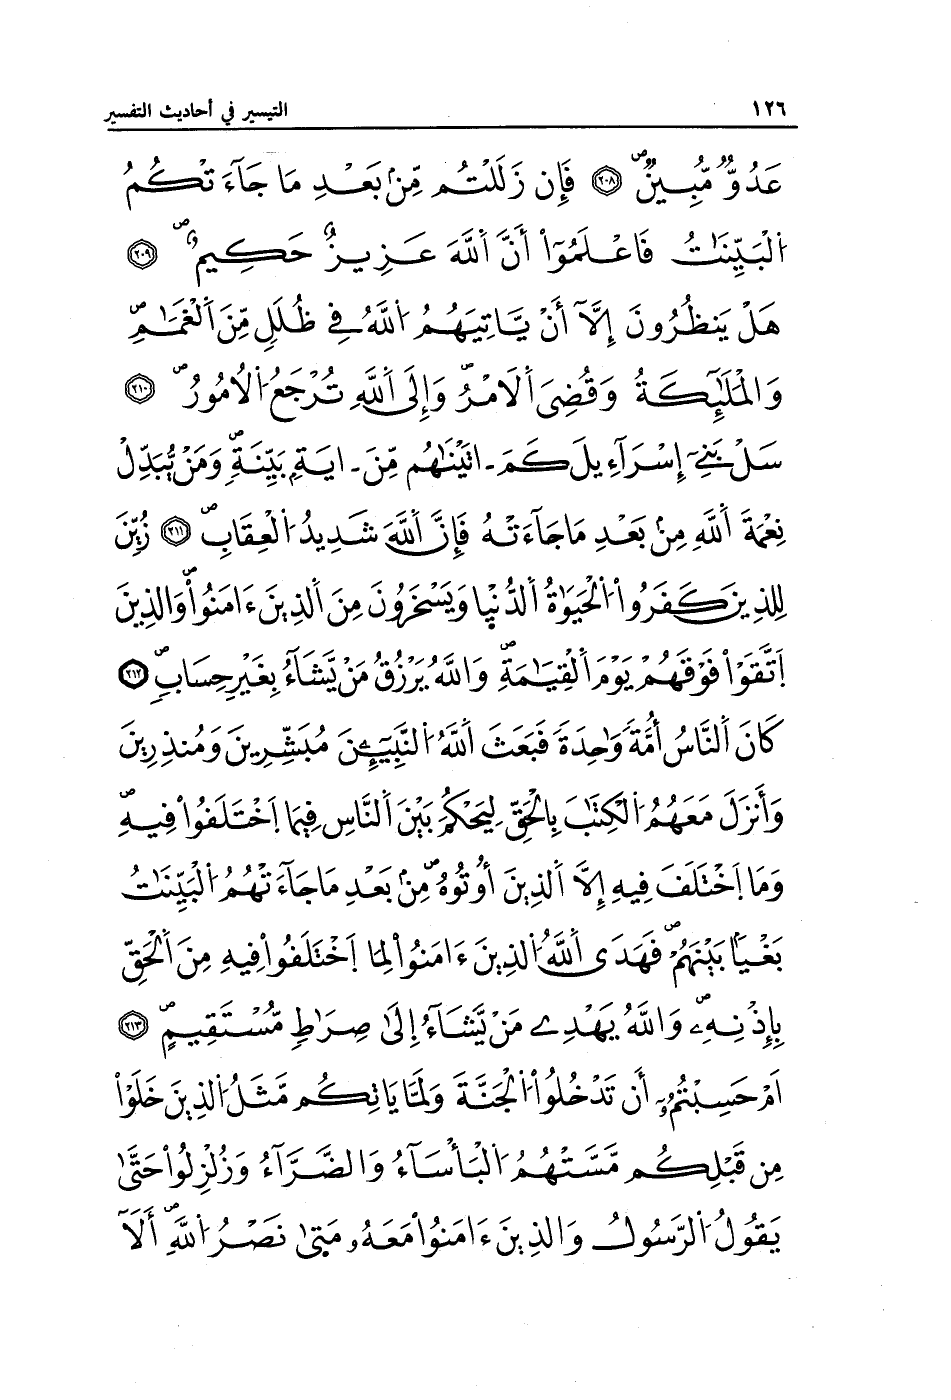 ١٢٦ التيسير في أحاديث التفسير
عَدُوٌّ مُّبِينٌ ۖ ٢٠٨ فَإِن زَلَلْتُم مِّنۢ بَعْدِ مَا جَآءَتْكُمُ
اُ۬لْبَيِّنَٰتُ فَاعْلَمُوٓاْ أَنَّ اَ۬للَّهَ عَزِيزٌ حَكِيمٌ ۖ ٢٠٩
هَلْ يَنظُرُونَ إِلَّآ أَنْ يَّاتِيَهُمُ اُ۬للَّهُ فِے ظُلَلٍ مِّنَ اَ۬لْغَمَٰمِ ۖ
وَالْمَلَٰٓئِكَةُ وَقُضِيَ اَ۬لَامْرُ ۖ وَإِلَى اَ۬للَّهِ تُرْجَعُ اُ۬لُامُورُ ۖ ٢١٠
سَلْ بَنِےٓ إِسْرَآءِيلَ كَمَ ـ اتَيْنَٰهُم مِّنَ ـ ايَةِۢ بَيِّنَةٍ ۖ وَمَنْ يُّبَدِّلْ
نِعْمَةَ اَ۬للَّهِ مِنۢ بَعْدِ مَا جَآءَتْهُ فَإِنَّ اَ۬للَّهَ شَدِيدُ اُ۬لْعِقَابِ ۖ ٢١١ زُيِّنَ
لِلذِينَ كَفَرُواْ اُ۬لْحَيَوٰةُ اُ۬لدُّنْيا وَيَسْخَرُونَ مِنَ اَ۬لذِينَ ءَامَنُواْ ۖ وَالذِينَ
اَ۪تَّقَوْاْ فَوْقَهُمْ يَوْمَ اَ۬لْقِيَٰمَةِ ۖ وَاللَّهُ يَرْزُقُ مَنْ يَّشَآءُ بِغَيْرِ حِسَابٍ ۖ ٢١٢
كَانَ اَ۬لنَّاسُ أُمَّةً وَٰحِدَةً فَبَعَثَ اَ۬للَّهُ اُ۬لنَّبِيٓـِٕينَ مُبَشِّرِينَ وَمُنذِرِينَ
وَأَنزَلَ مَعَهُمُ اُ۬لْكِتَٰبَ بِالْحَقِّ لِيَحْكُمَ بَيْنَ اَ۬لنَّاسِ فِيمَا اَ۪خْتَلَفُواْ فِيهِ ۖ
وَمَا اَ۪خْتَلَفَ فِيهِ إِلَّا اَ۬لذِينَ أُوتُوهُ مِنۢ بَعْدِ مَا جَآءَتْهُمُ اُ۬لْبَيِّنَٰتُ
بَغْياَۢ بَيْنَهُمْ ۖ فَهَدَى اَ۬للَّهُ اُ۬لذِينَ ءَامَنُواْ لِمَا اَ۪خْتَلَفُواْ فِيهِ مِنَ اَ۬لْحَقِّ
بِإِذْنِهِۦ ۖ وَاللَّهُ يَهْدِے مَنْ يَّشَآءُ إِلَىٰ صِرَٰطٍ مُّسْتَقِيمٍ ۖ ٢١٣
اَمْ حَسِبْتُمُۥٓ أَن تَدْخُلُواْ اُ۬لْجَنَّةَ وَلَمَّا يَاتِكُم مَّثَلُ اُ۬لذِينَ خَلَوْاْ
مِن قَبْلِكُم مَّسَّتْهُمُ اُ۬لْبَأْسَآءُ وَالضَّرَّآءُ وَزُلْزِلُواْ حَتَّىٰ
يَقُولُ اُ۬لرَّسُولُ وَالذِينَ ءَامَنُواْ مَعَهُۥ مَتَىٰ نَصْرُ اُ۬للَّهِ ۖ أَلَآ